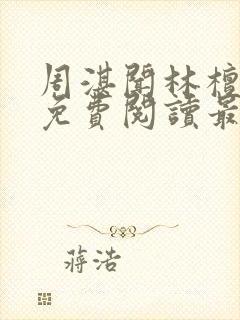 周湛聞林檀
免費閱讀最
蔣浩